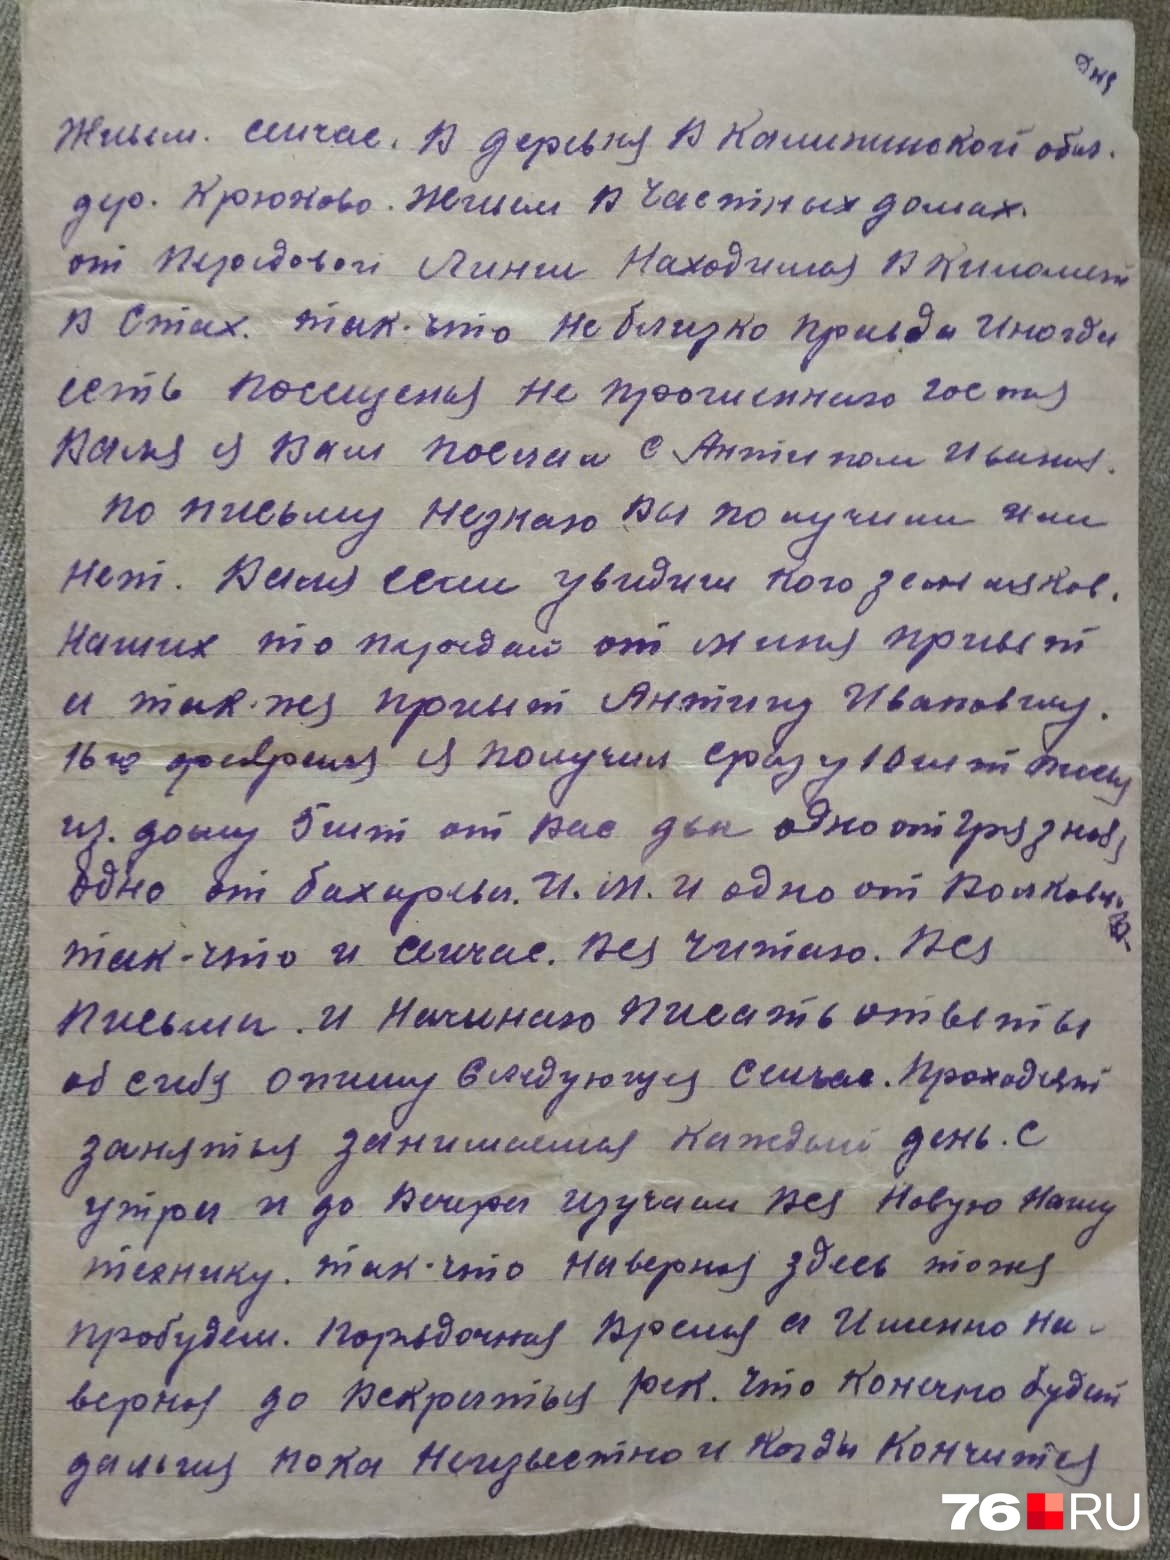 Дня
Живем. сейчас. В деревня В Калининской обл.
дер. Крюково. Живем В Частных домах.
от Передовой Линии Находимся В Километ
В Стах. так-что не близко правда Иногда
есть Посещеная не прогиенного гостя
Валя я Вам послал с Антипом Иваныч.
по письму незнаю Вы получили или
нет. Валя если увидиш кого земляков.
Наших то передай от меня привет
и так-же привет Антипу Ивановичу.
16го февраля я получил сразу 10 шт писем
из. дому 5 шт от Вас два одно от Грязнова
одно от бахарева. И. М. и одно от Волкова
так-что и сейчас. Вся читаю. Вся
Письма. и Начинаю писать ответы
об себя опишу Следующуя Сейчас. Проходят
занятья занимаемся каждый день. С
утра и до Вечера изучаем Вся Новую Нашу
технику. так-что наверная здесь тожа
пробудем. Порядочная Время а Именно На-
верная до Вскрытья рек. Что конечно будет
дальша пока Неизвестно и когда Кончится
76.RU